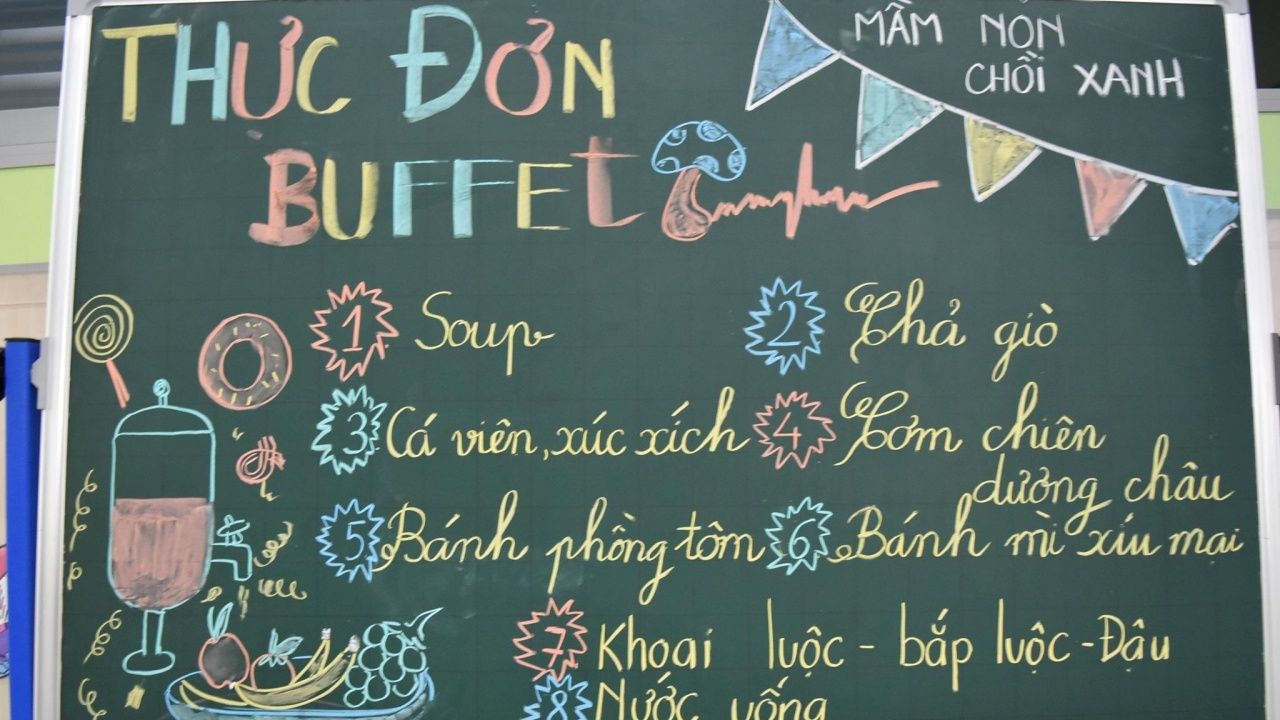 THỰC ĐƠN
BUFFET
MẦM NON
CHỒI XANH
1 Soup
2 Chả giò
3 Cá viên, xúc xích
4 Cơm chiên
dương châu
5 Bánh phồng tôm
6 Bánh mì xíu mại
7 Khoai luộc - bắp luộc - Đậu
8 Nước uống